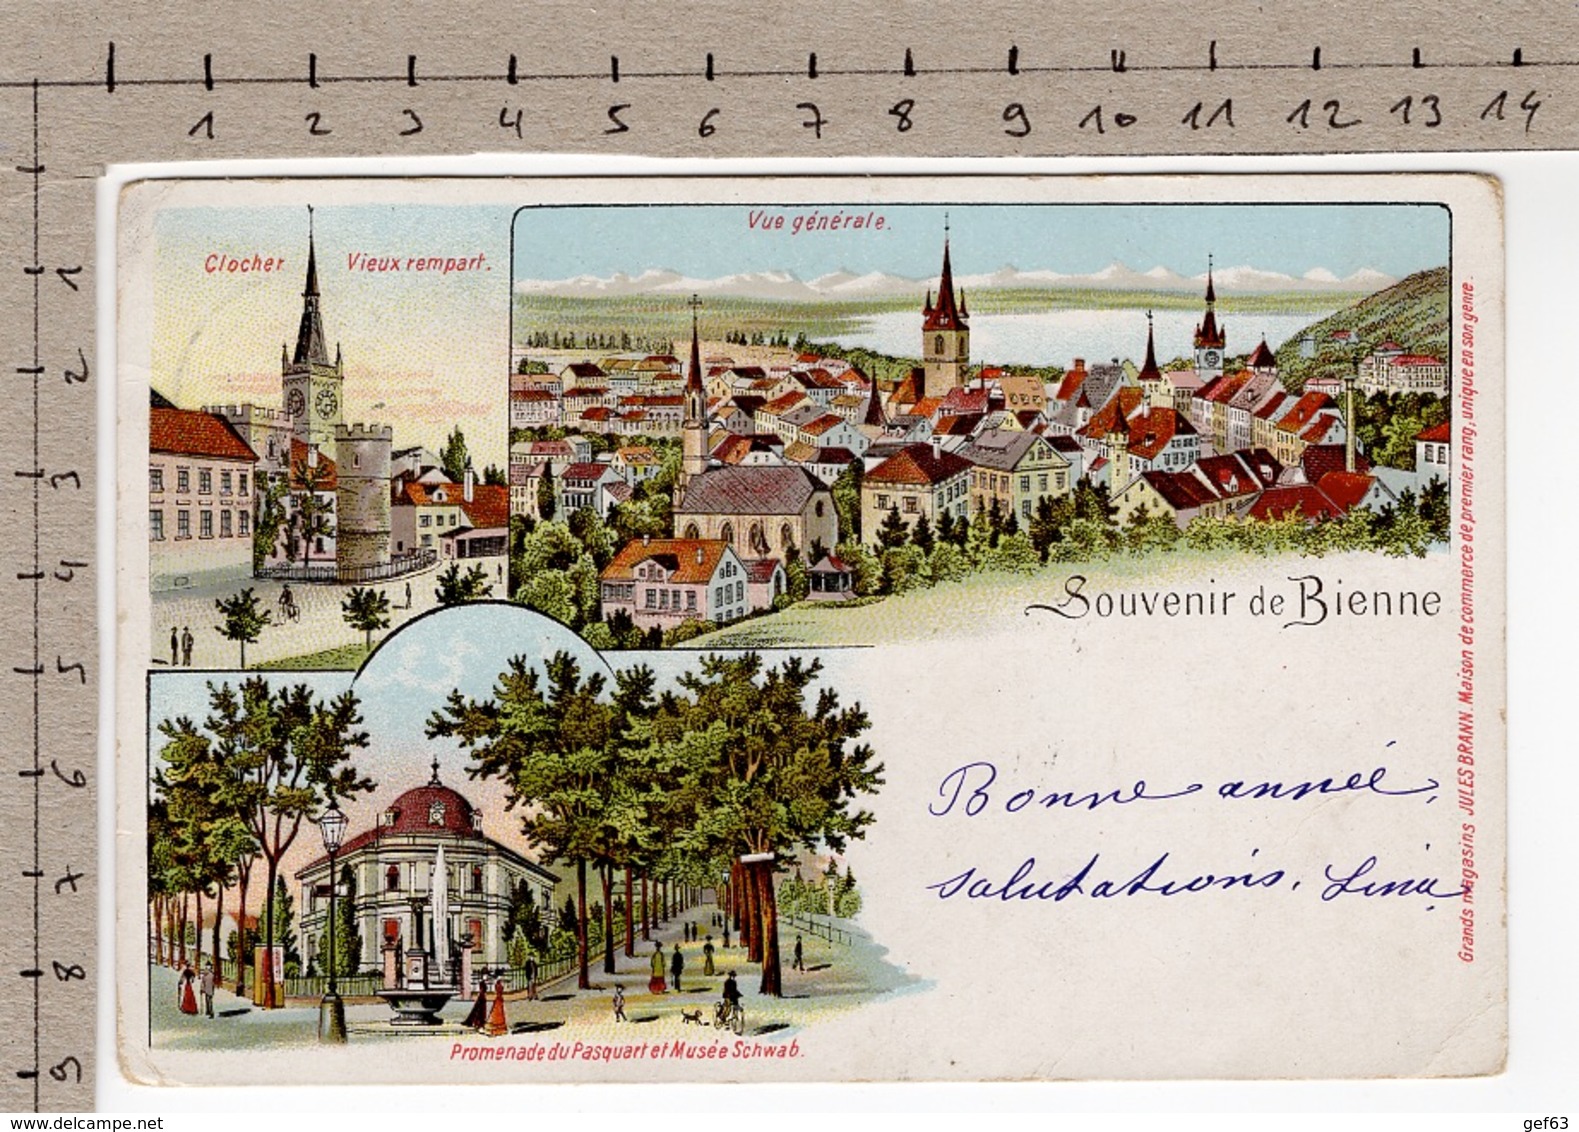 1 2 3 4 5 6 7 8 9 10 11 12 13 14
1
2
3
4
5
6
7
8
9
Clocher Vieux rempart.
Vue générale.
Souvenir de Bienne
Bonne année,
salutations. Lina
Promenade du Pasquart et Musée Schwab.
Grands magasins JULES BRANN. Maison de commerce de premier rang, unique en son genre.
delcampe.net
gef63